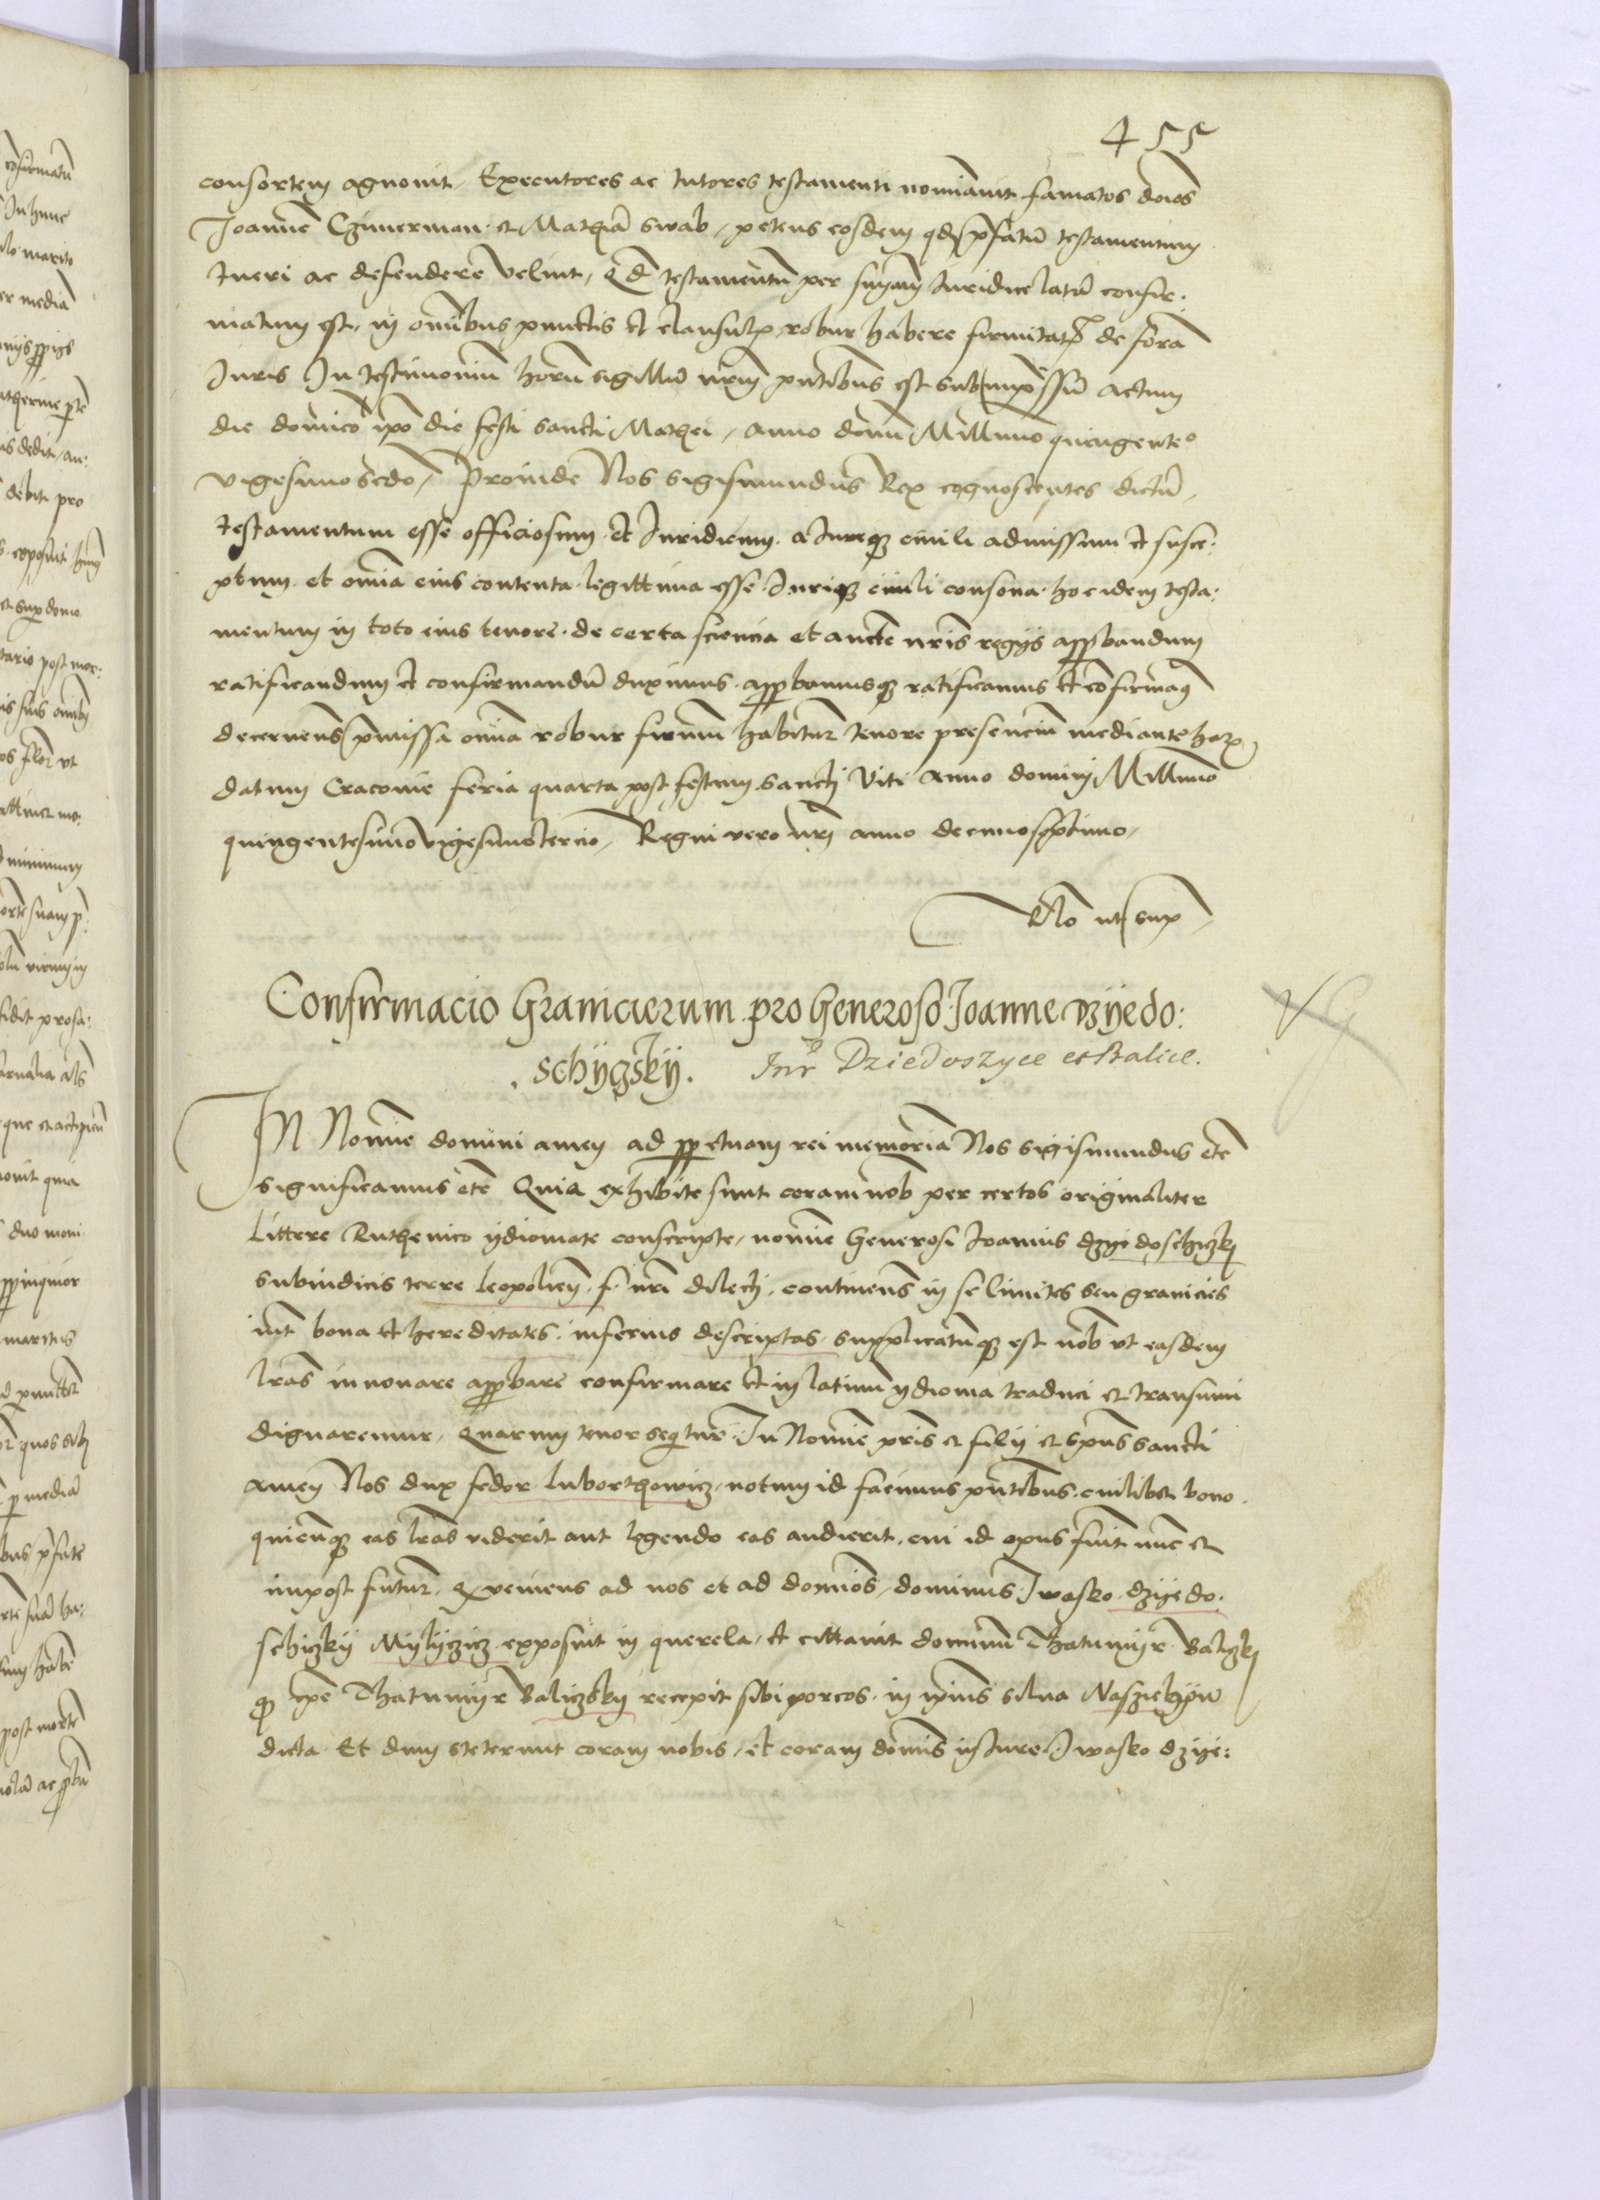 455
consortem agnovit, Executores ac tutores testamenti nominavit famatos dnos
Joanne Czimerman et Mathia swab, petens eosdem qd pfatu testamentum
tueri ac defendere velint, Qd testamentu per sniam Juridice lata confir:
matum est, in omibus punctis et clausulis robur habere firmitatis de fora
Juris In testimoniu horu sigillu nrm pntibus est subimpssu Actum
die dominico ipo die festi sancti Mathei, anno domi Millimo quingente°
vigesimo scdo, Proinde Nos Sigismundus Rex cognoscentes dictu,
testamentum esse officiosum et Juridicum a Jureq civili admissum et susce:
ptum et omia eius contenta legittima esse Juriq civili consona hoc idem testa:
mentum in toto eius tenore de certa sciencia et aucte nris regiis approbandum
ratificandum et confirmandu duximus approbamusq ratificamus et cofirmam9
decernens pmissa omia robur firmu habitur tenore presenciu mediante harz
datum Cracovie feria quarta post festum sancti Viti Anno domini Millimo
quingentesimo vigesimotercio, Regni vero nri anno decimoseptimo,
Rlo ut sup
Confirmacio Granicierum pro Generoso Joanne Dzyedo:
schyczky. Inr Dziedoszyce et Balice.
IN Nomie domini amen ad ppetuam rei memoria Nos Sigismundus etc
significamus etc Quia exhibite sunt coram nob per certos originaliter
littere Ruthenico ydiomate conscripte, nomie Generosi Joannis dzyedoschiczky
subiudicis terre leopolien f nri dilecti, continens in se limites seu granicies
int bona et hereditates inferius descriptas, supplicatuq est nob ut easdem
lras innovare approbare confirmare et in latinu ydioma traduci et transumi
dignaremur, Quarum tenor sequitur In Nomie pris et filii et spus sancti
amen Nos dux fedor luborthowicz, notum id facimus pntibus cuilibet bono
quicunq eas lras viderit aut legendo eas audierit, cui id opus fuit nuc et
inpost futur, Qz veniens ad nos et ad domios, dominus Iwasko dzyedo:
schiczky Mylyczicz exposuit in querela, et cittavit dominu Thatumyr Balyczky
q ipe Thatumyr Baliczsky recepit sibi porcos in ipius silva
dicta Et dum steterunt coram nobis, et coram domis in Jure Iwasko dzye: